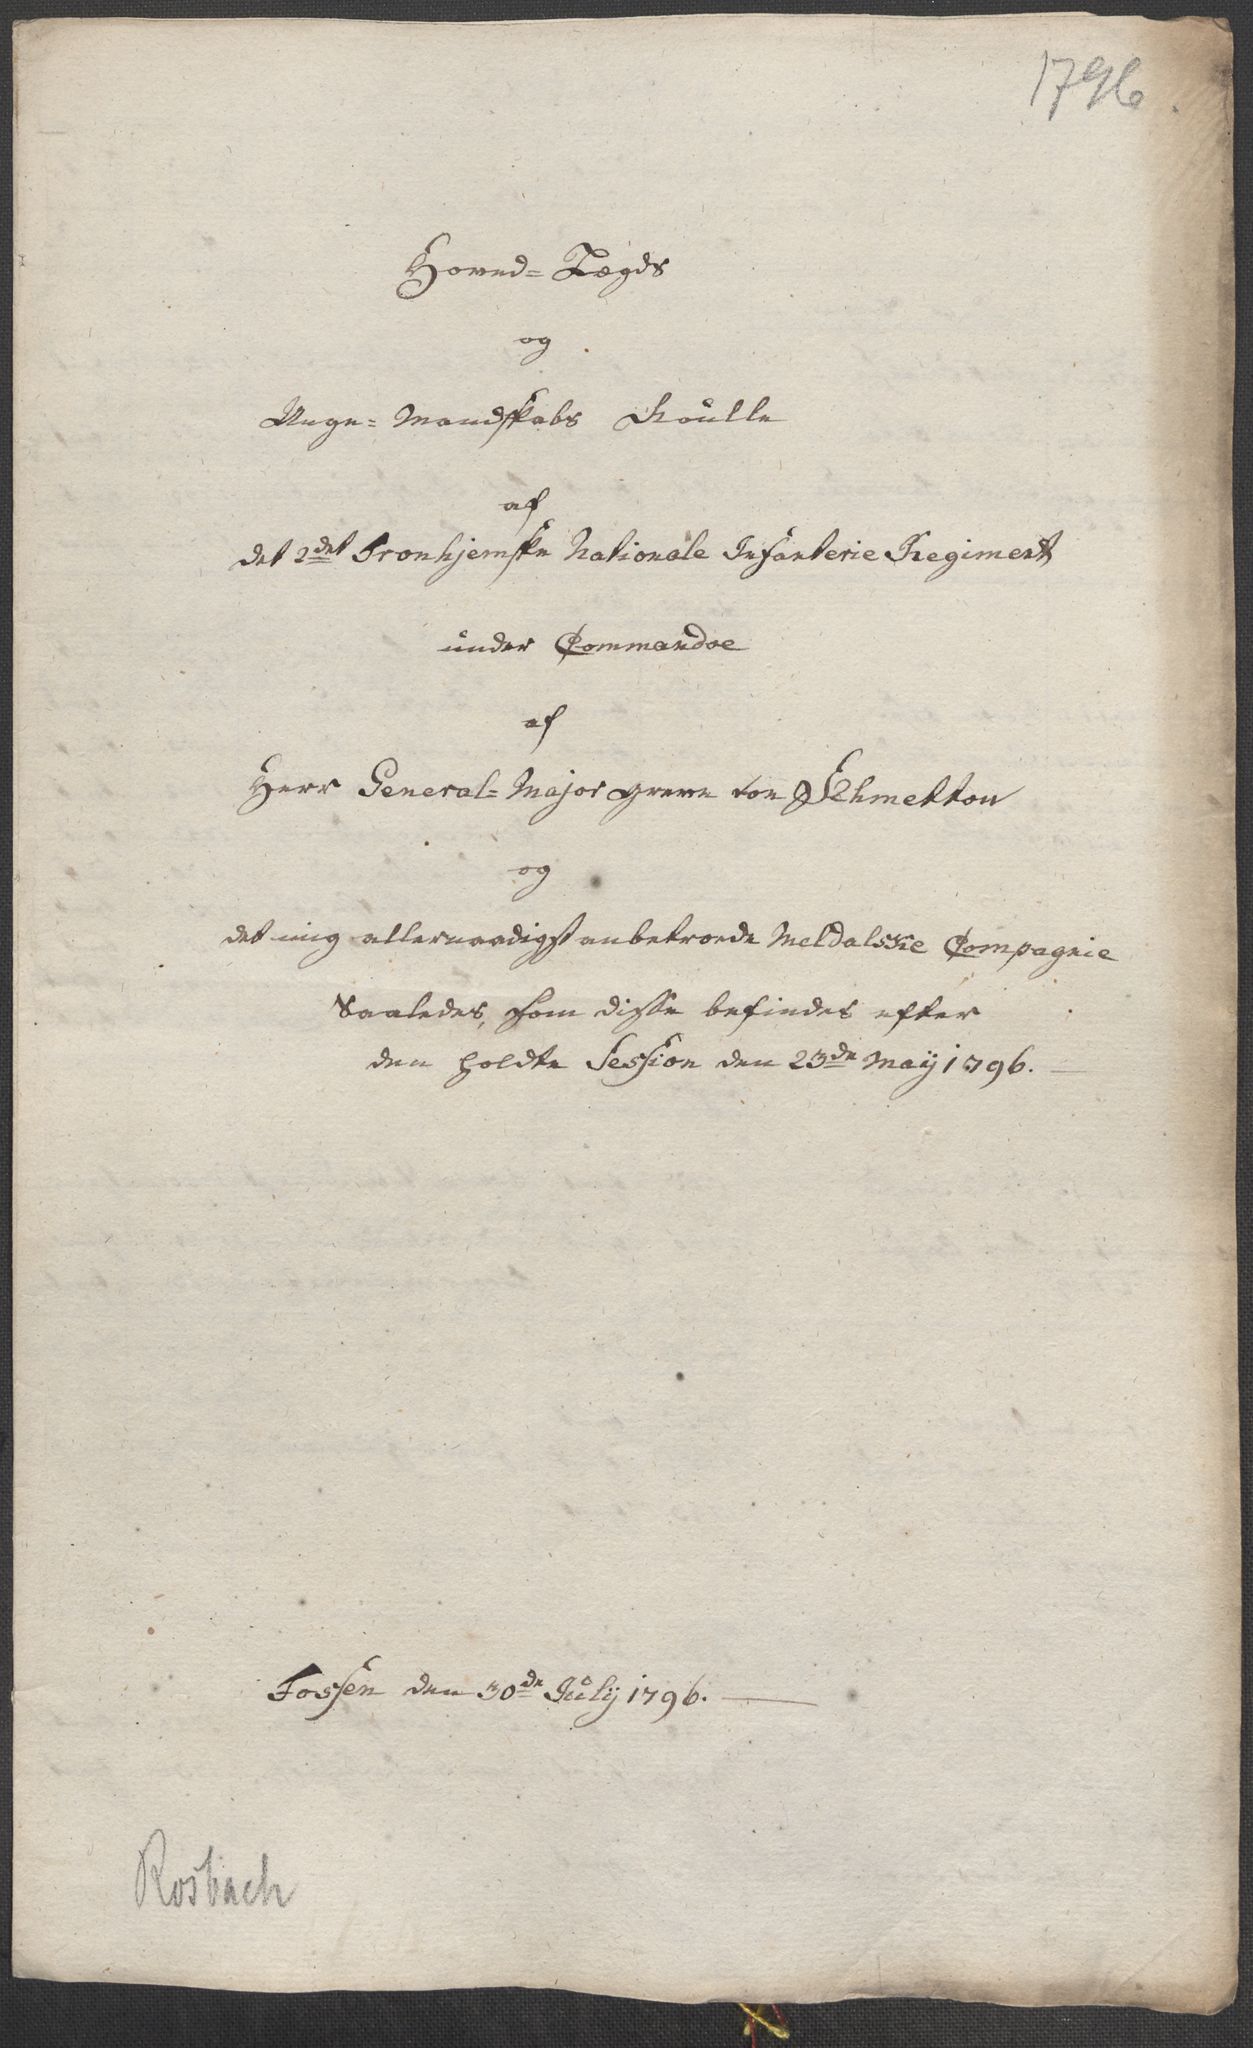 1796.
Hoved= Lægds
og
Unge= Mandskabs Roulle
af
det 2det Tronhjemske Nationale Infanterie Regiment
under Commandoe
af
Herr General= Major Greve von Schmettou
og
det mig allernaadigst anbetroede Meldalske Compagnie
Saaledes, som disse befindes efter
den holdte Session den 23de Maÿ 1796.
Fossen den 30de Julÿ 1796.
Rosbach